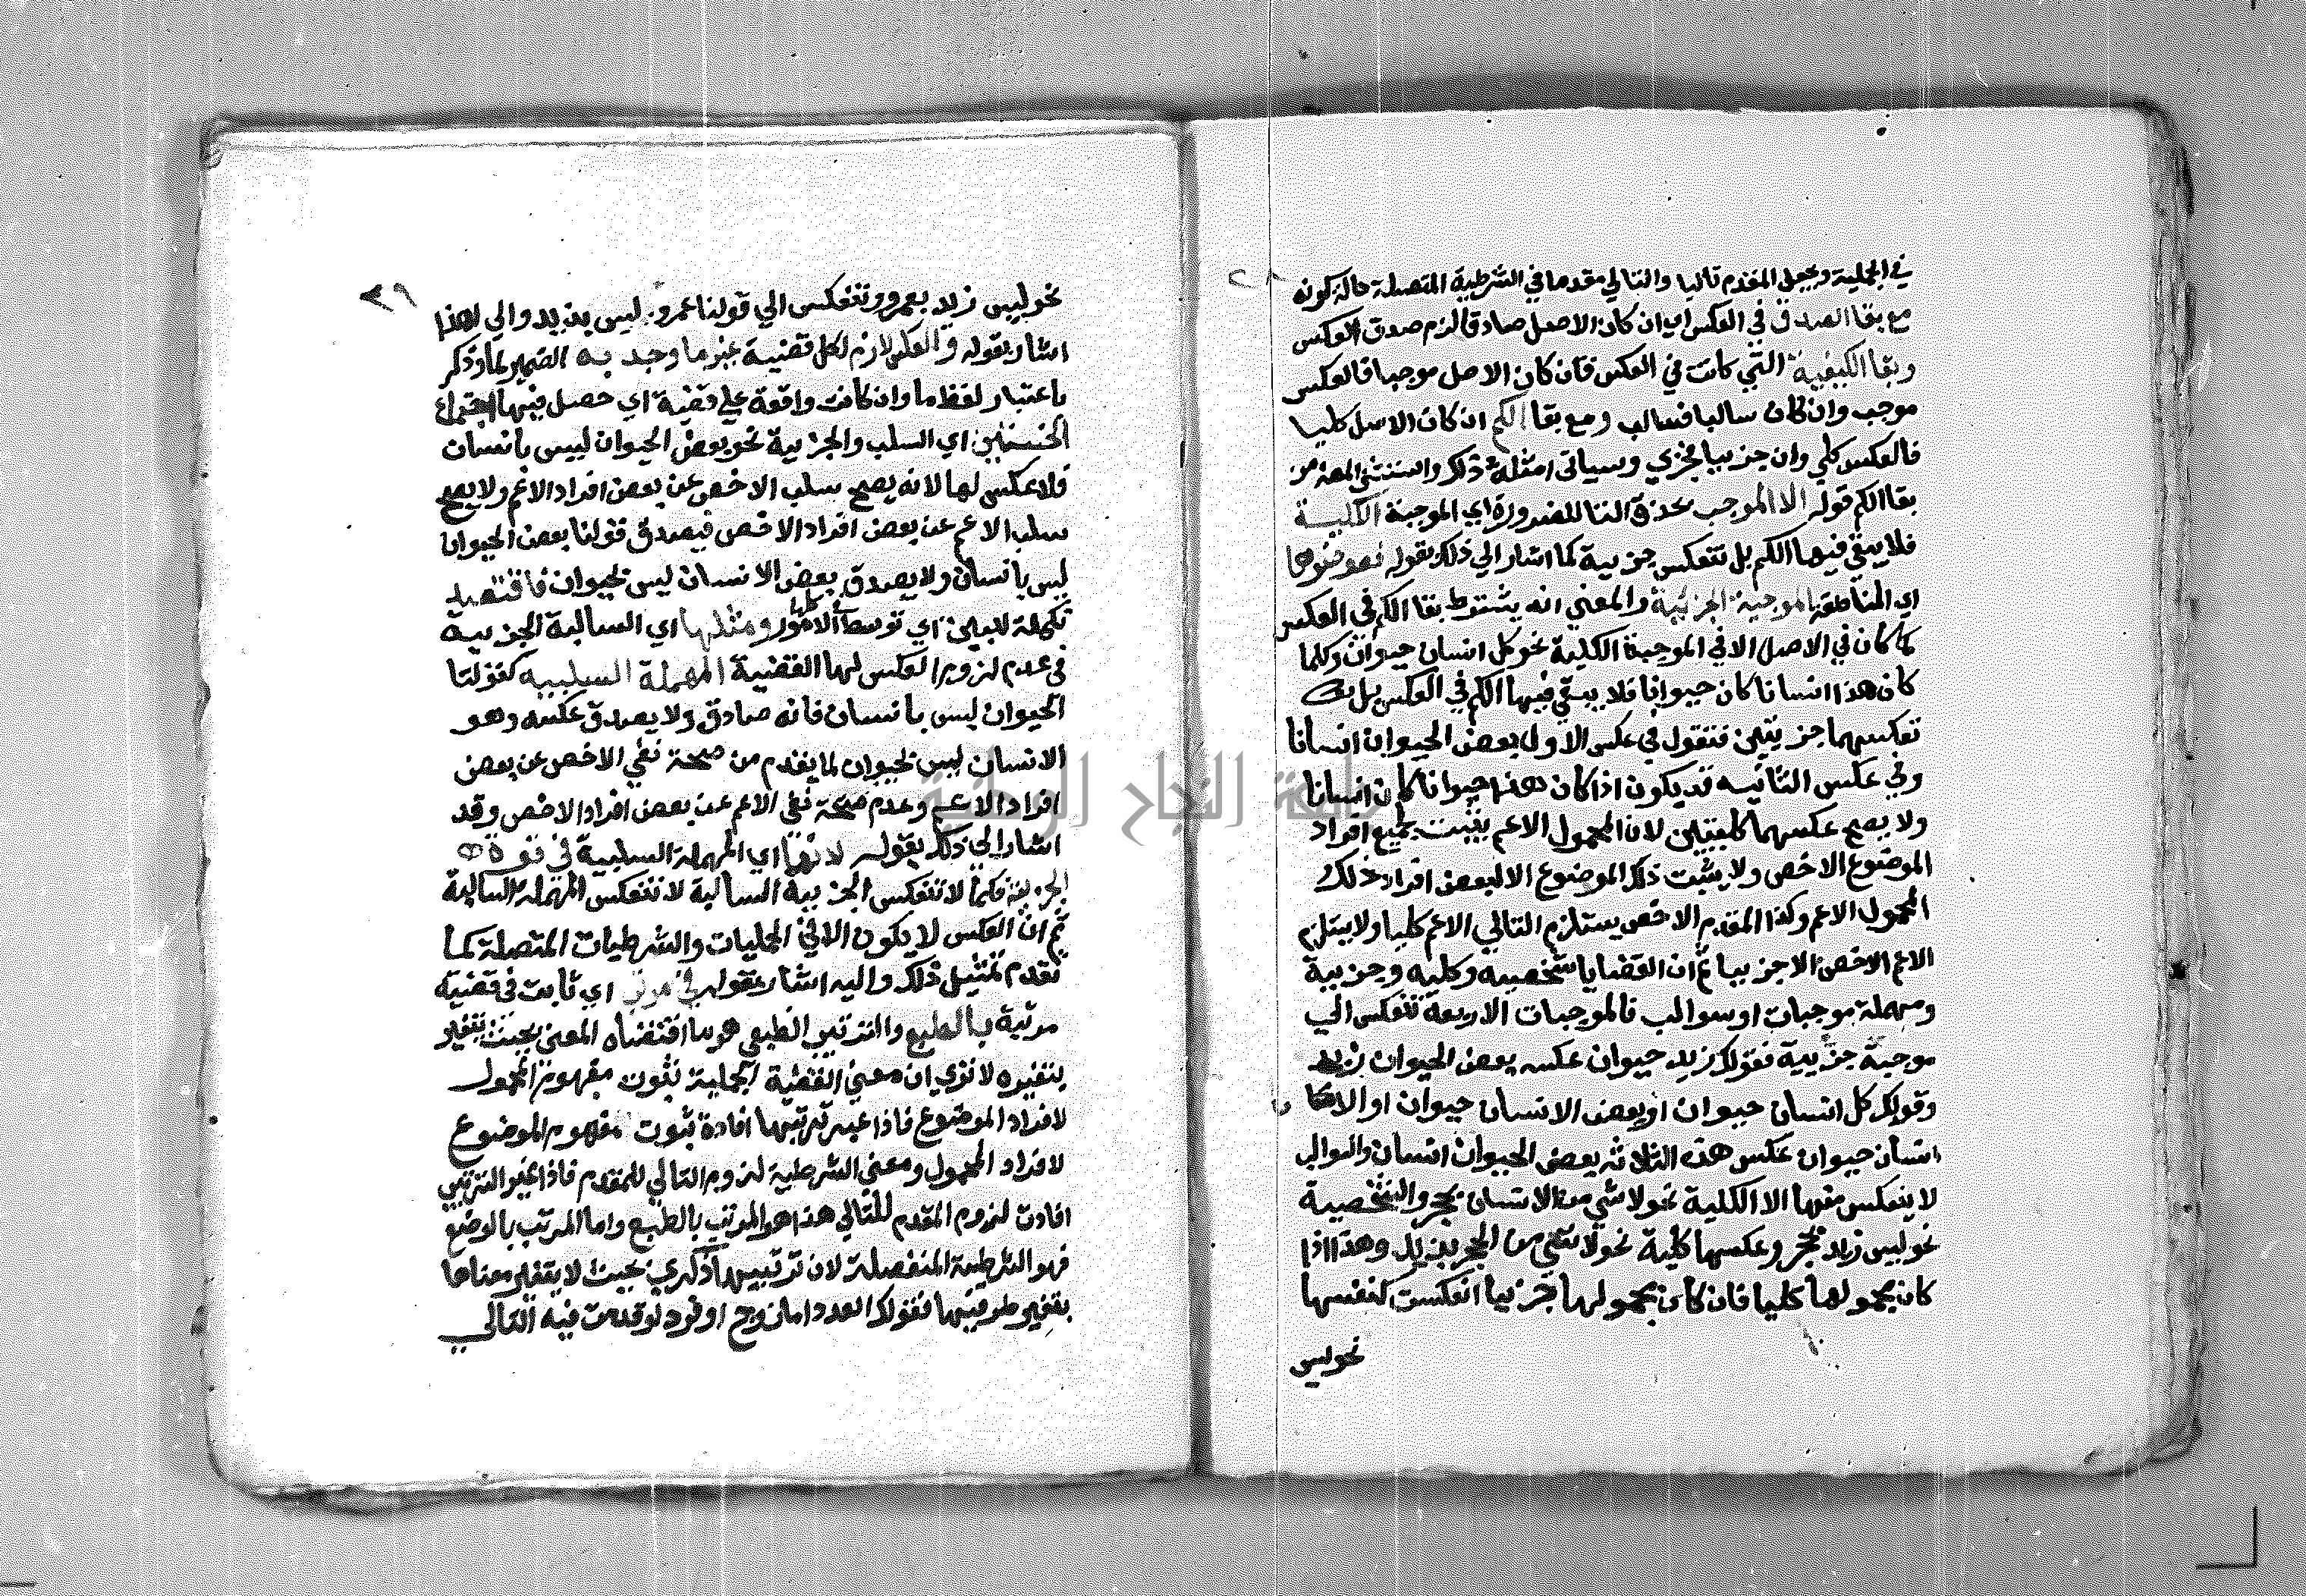 ٢٨
في الحملية وبجعل المقدم تاليا والتالي مقدما في الشرطية المتصلة حالة كونه
مع بقا الصدق في العكس اي ان كان الاصل صادقا لزم صدق العكس
وبقا الكيفية التي كانت في العكس فان كان الاصل موجبا فالعكس
موجب وان كان سالبا فسالب ومع بقا الكم ان كان الاصل كليا
فالعكس كلي وان جزييا فجزي وسياتى امثلة ذلك واستثنى المصنـ من
بقا الكم قوله الا الموجب بحذف التا للضرورة اي الموجبة الكلية
فلا يبقي فيها الكم بل تنعكس جزيية كما اشار الي ذلك بقوله فعوضوها
اي المناطقة الموجبة الجزئية والمعني انه يشترط بقا الكم في العكس
كما كان في الاصل الا في الموجبة الكلية نحو كل انسان حيوان وكلما
كان هذا انسانا كان حيوانا فلا يبقي فيها الكم في العكس بل
تعكسهما جزيتين فتقول في عكس الاول بعض الحيوان انسانا
وفي عكس الثانيه قد يكون اذا كان هذا حيوانا كان انسانا
ولا يصح عكسهما كليتين لان المحمول الاعم يثبت لجميع افراد
الموضوع الاخص ولا يثبت ذلك الموضوع الا لبعض افراد ذلك
المحمول الاعم وكذا المقدم الاخص يستلزم التالي الاعم كليا ولا يستلزم
الاعم الاخص الا جزييا ثم ان القضايا شخصيه وكليه وجزيية
ومهملة موجبات او سوالب فالموجبات الاربعة تنعكس الي
موجبة جزيية فقولك زيد حيوان عكسه بعض الحيوان زيد
وقولك كل انسان حيوان او بعض الانسان حيوان او الا
انسان حيوان عكس هذه الثلاثه بعض الحيوان انسان والسوالب
لا ينعكس منها الا الكلية نحو لا شي من الانسان بحجر والشخصية
نحو ليس زيد بحجر وعكسها كلية نحو لا شي من الحجر بزيد وهذا اذا
كان محمولها كليا فان كان محمولها جزييا انعكست كنفسها
نحو ليس
٢٩
نحو ليس زيد بعمرو وتنعكس الي قولنا عمرو ليس بزيد والي هذا
اشار بقوله والعكس لازم لكل قضية غير ما وجد به الضمير لما وذكر
باعتبار لفظ ما وان كانت واقعة علي قضية اي حصل فيها اجتماع
الخستين اي السلب والجزيية نحو بعض الحيوان ليس بانسان
فلا عكس لها لانه يصح سلب الاخص عن بعض افراد الاعم ولا يصح
سلب الاعم عن بعض افراد الاخص فيصدق قولنا بعض الحيوان
ليس بانسان ولا يصدق بعض الانسان ليس بحيوان فاقتصد
تكملة للبيت اي توسط في الامور ومثلها اي السالبة الجزيية
فى عدم لزوم العكس لها القضية المهملة السلبيه كقولنا
الحيوان ليس بانسان فانه صادق ولا يصدق عكسه وهو
الانسان ليس بحيوان لما يقدم من صحة نفي الاخص عن بعض
افراد الاعم وعدم صحة نفي الاعم عن بعض افراد الاخص وقد
اشار الي ذلك بقوله لانها اي المهملة السلبية في قوة
الجزيية فكما لا تنعكس الجزيية السالبة لا تنعكس المهملة السالبة
ثم ان العكس لا يكون الا في الحمليات والشرطيات المتصلة كما
تقدم تمثيل ذلك واليه اشار بقوله في مرتب اي ثابت في قضية
مرتبة بالطبع والترتيب الطبعي هو ما اقتضاه المعنى بحيث يتغير
بتغيره لا تري ان معني القضية الحملية ثبوت مفهوم المحمول
لافراد الموضوع فاذا غير ترتيبها افادة ثبوت مفهوم الموضوع
لافراد المحمول ومعنى الشرطية لزوم التالي للمقدم فاذا غير الترتيب
افادت لزوم المقدم للتالي هذا هو المرتب بالطبع واما المرتب بالوضع
فهو الشرطية المنفصلة لان ترتيبها ذكري بحيث لا يتغير معناها
بتغير طرفيها فقولك العدد اما زوج او فرد لو قدمت فيه التالي
جامعة النجاح الوطنية